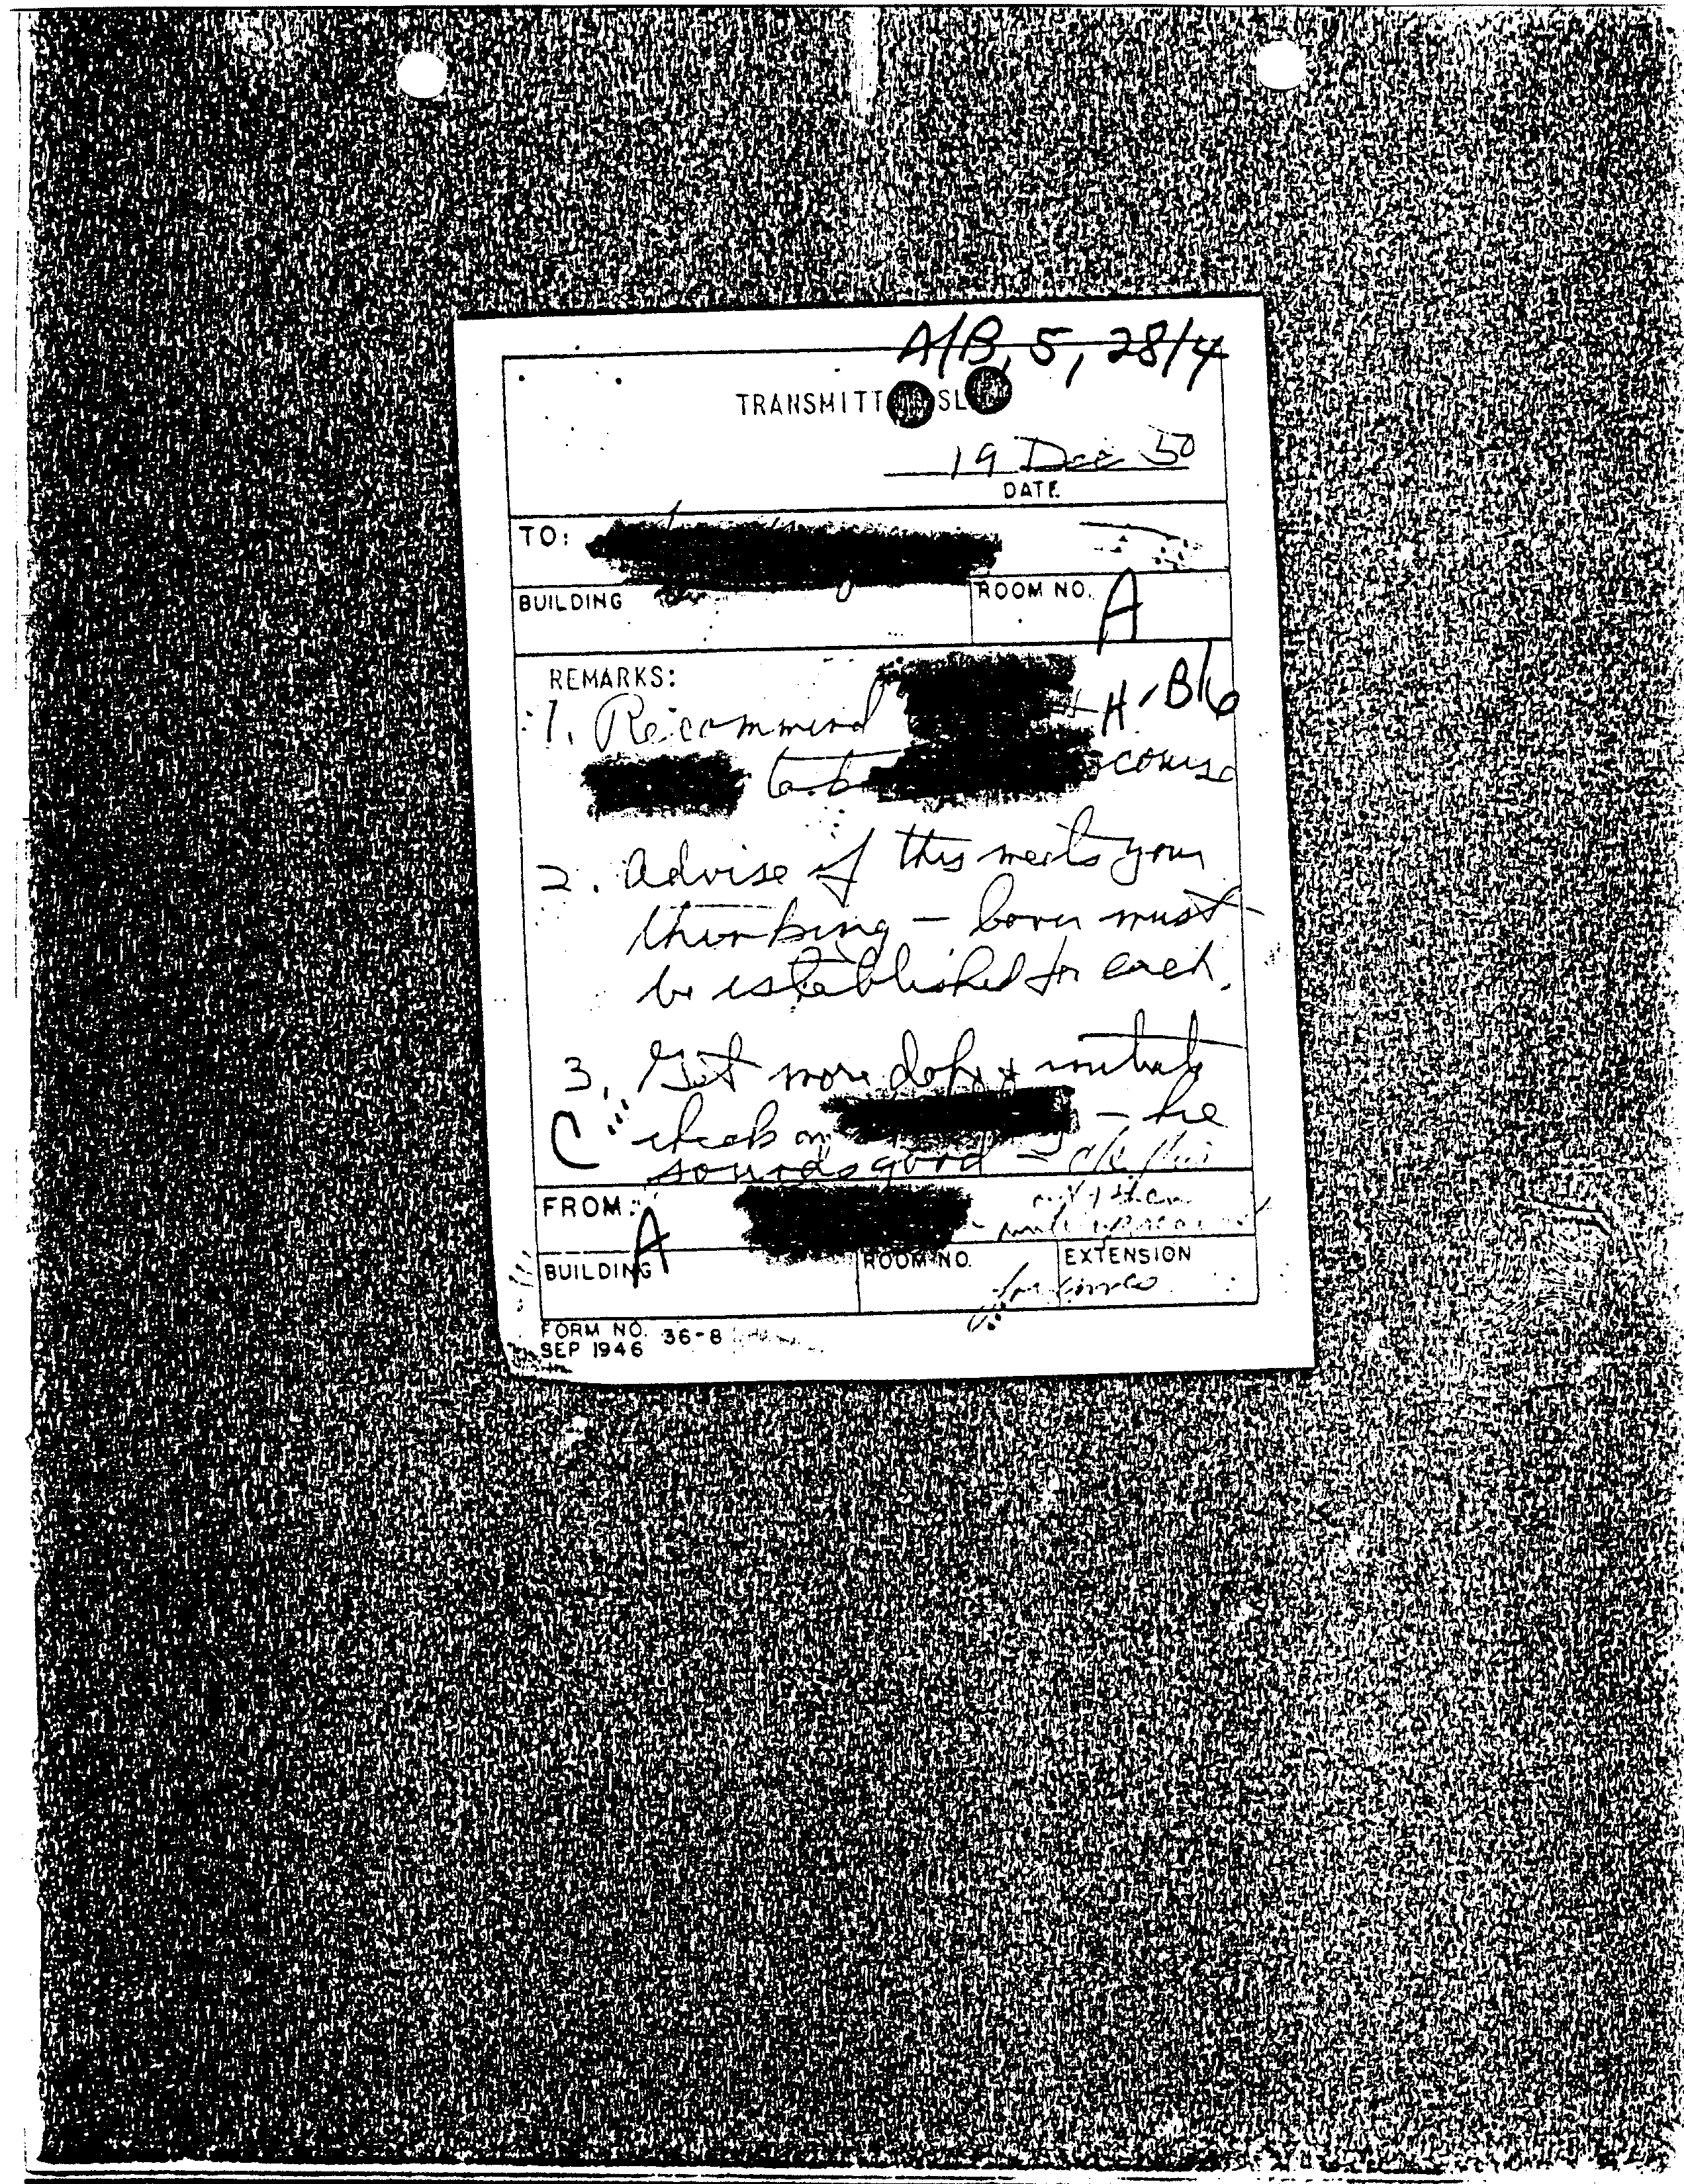 A/B, 5, 28/4
TRANSMITT SL
19 Dec 50
DATE
TO:
BUILDING ROOM NO. A
REMARKS:
H-B/6
1. Recommend
to take course
2. Advise if this meets your
thinking – cover must
be established for each.
3. Get more dope & initiate
C check on – he
sounds good –
FROM: A
BUILDING ROOM NO. EXTENSION
FORM NO. 36-8
SEP 1946